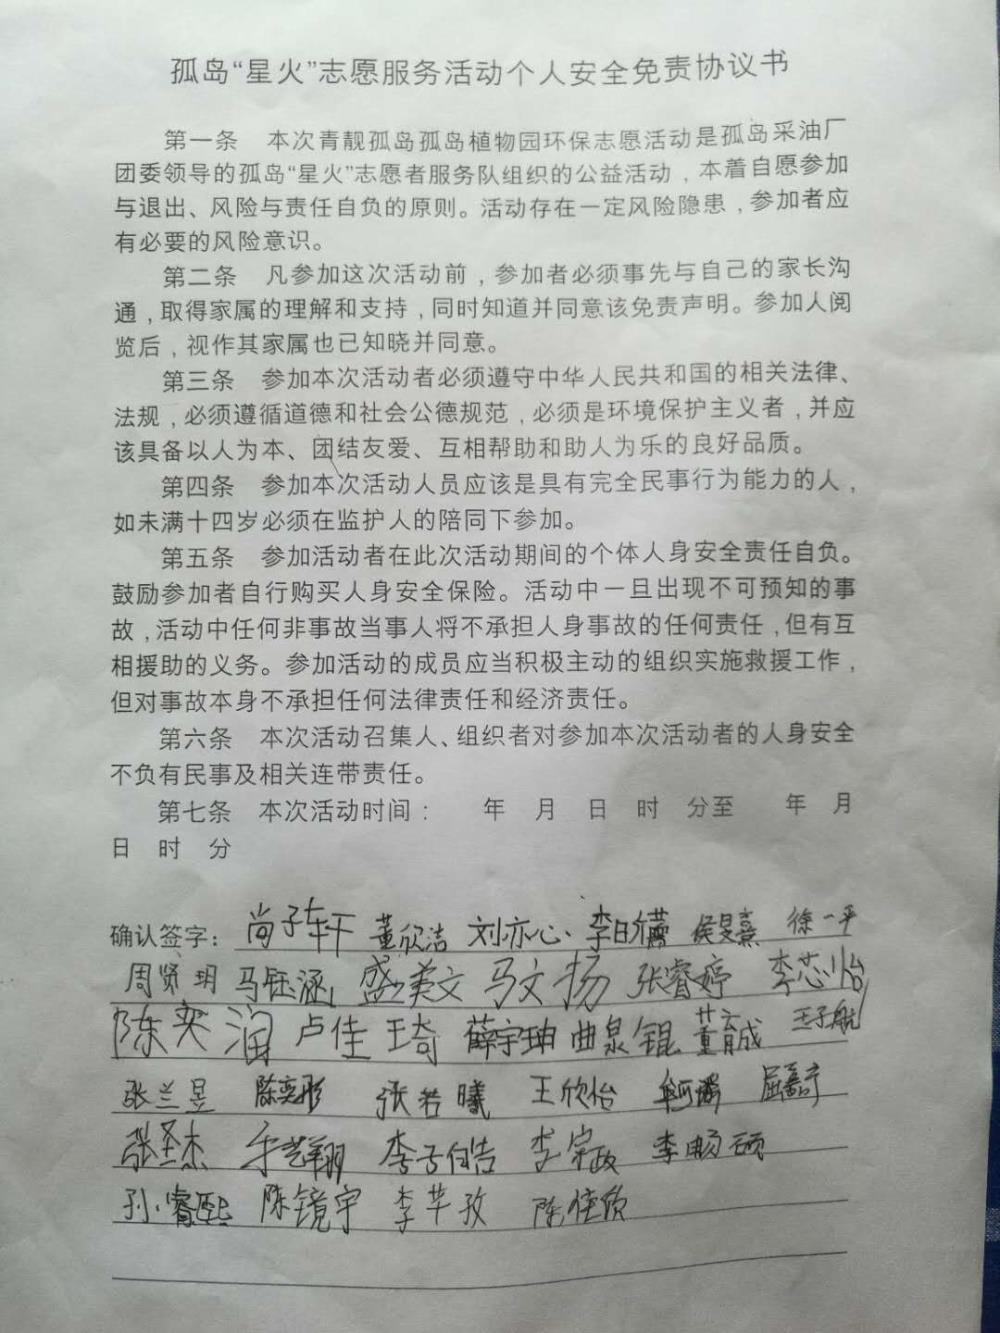 孤岛“星火”志愿服务活动个人安全免责协议书
第一条　本次青靓孤岛孤岛植物园环保志愿活动是孤岛采油厂
团委领导的孤岛“星火”志愿者服务队组织的公益活动，本着自愿参加
与退出、风险与责任自负的原则。活动存在一定风险隐患，参加者应
有必要的风险意识。
第二条　凡参加这次活动前，参加者必须事先与自己的家长沟
通，取得家属的理解和支持，同时知道并同意该免责声明。参加人阅
览后，视作其家属也已知晓并同意。
第三条　参加本次活动者必须遵守中华人民共和国的相关法律、
法规，必须遵循道德和社会公德规范，必须是环境保护主义者，并应
该具备以人为本、团结友爱、互相帮助和助人为乐的良好品质。
第四条　参加本次活动人员应该是具有完全民事行为能力的人，
如未满十四岁必须在监护人的陪同下参加。
第五条　参加活动者在此次活动期间的个体人身安全责任自负。
鼓励参加者自行购买人身安全保险。活动中一旦出现不可预知的事
故，活动中任何非事故当事人将不承担人身事故的任何责任，但有互
相援助的义务。参加活动的成员应当积极主动的组织实施救援工作，
但对事故本身不承担任何法律责任和经济责任。
第六条　本次活动召集人、组织者对参加本次活动者的人身安全
不负有民事及相关连带责任。
第七条　本次活动时间：　　年　月　日　时　分至　　年　月
日　时　分
确认签字：尚子轩 董欣洁 刘亦心 侯旻熹 徐一平
周贤玥 马钰涵 盛美文 马文扬 张睿婷 李芯怡
陈奕润 卢佳琦 薛宇珅 曲泉锟 董育成 王子航
张兰昱 陈奕彤 张若曦 王欣怡
张圣杰 于艺翔 李子皓 李宗政 李畅硕
孙睿熙 陈镜宇 李芊孜 陈佳